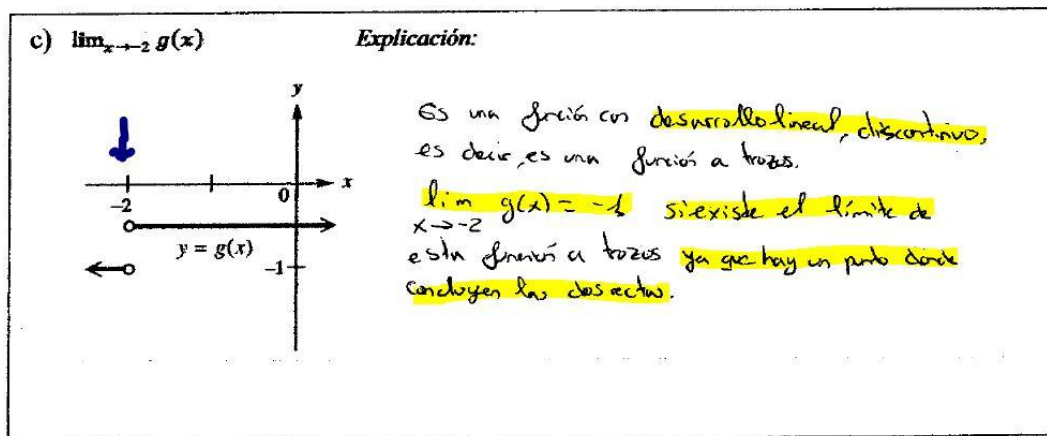 c) lim x→-2 g(x) Explicación:
y
x
-2
0
y = g(x)
-1
Es una función con desarrollo lineal, discontinuo,
es decir, es una función a trozos.
lim g(x) = -1 si existe el límite de
x→-2
esta función a trozos ya que hay un punto donde
concluyen las dos rectas.